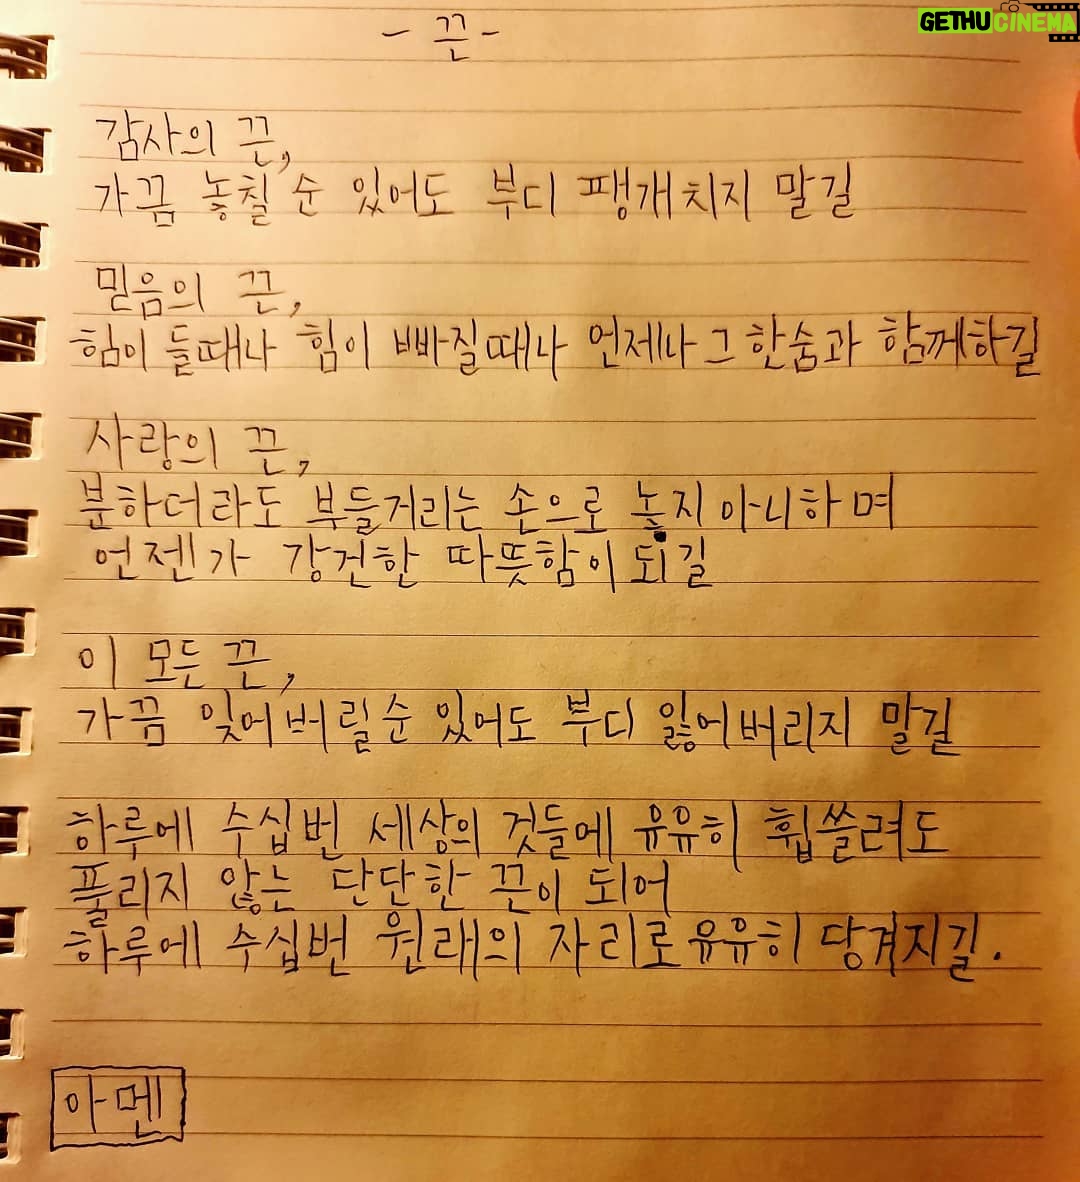 GETHUCINEMA
- 끈 -
감사의 끈,
가끔 놓칠 순 있어도 부디 팽개치지 말길
믿음의 끈,
힘이 들때나 힘이 빠질때나 언제나 그 한숨과 함께하길
사랑의 끈,
분하더라도 부들거리는 손으로 놓지 아니하며
언젠가 강건한 따뜻함이 되길
이 모든 끈,
가끔 잊어버릴 순 있어도 부디 잃어버리지 말길
하루에 수십번 세상의 것들에 유유히 휩쓸려도
풀리지 않는 단단한 끈이 되어
하루에 수십번 원래의 자리로 유유히 당겨지길.
아멘